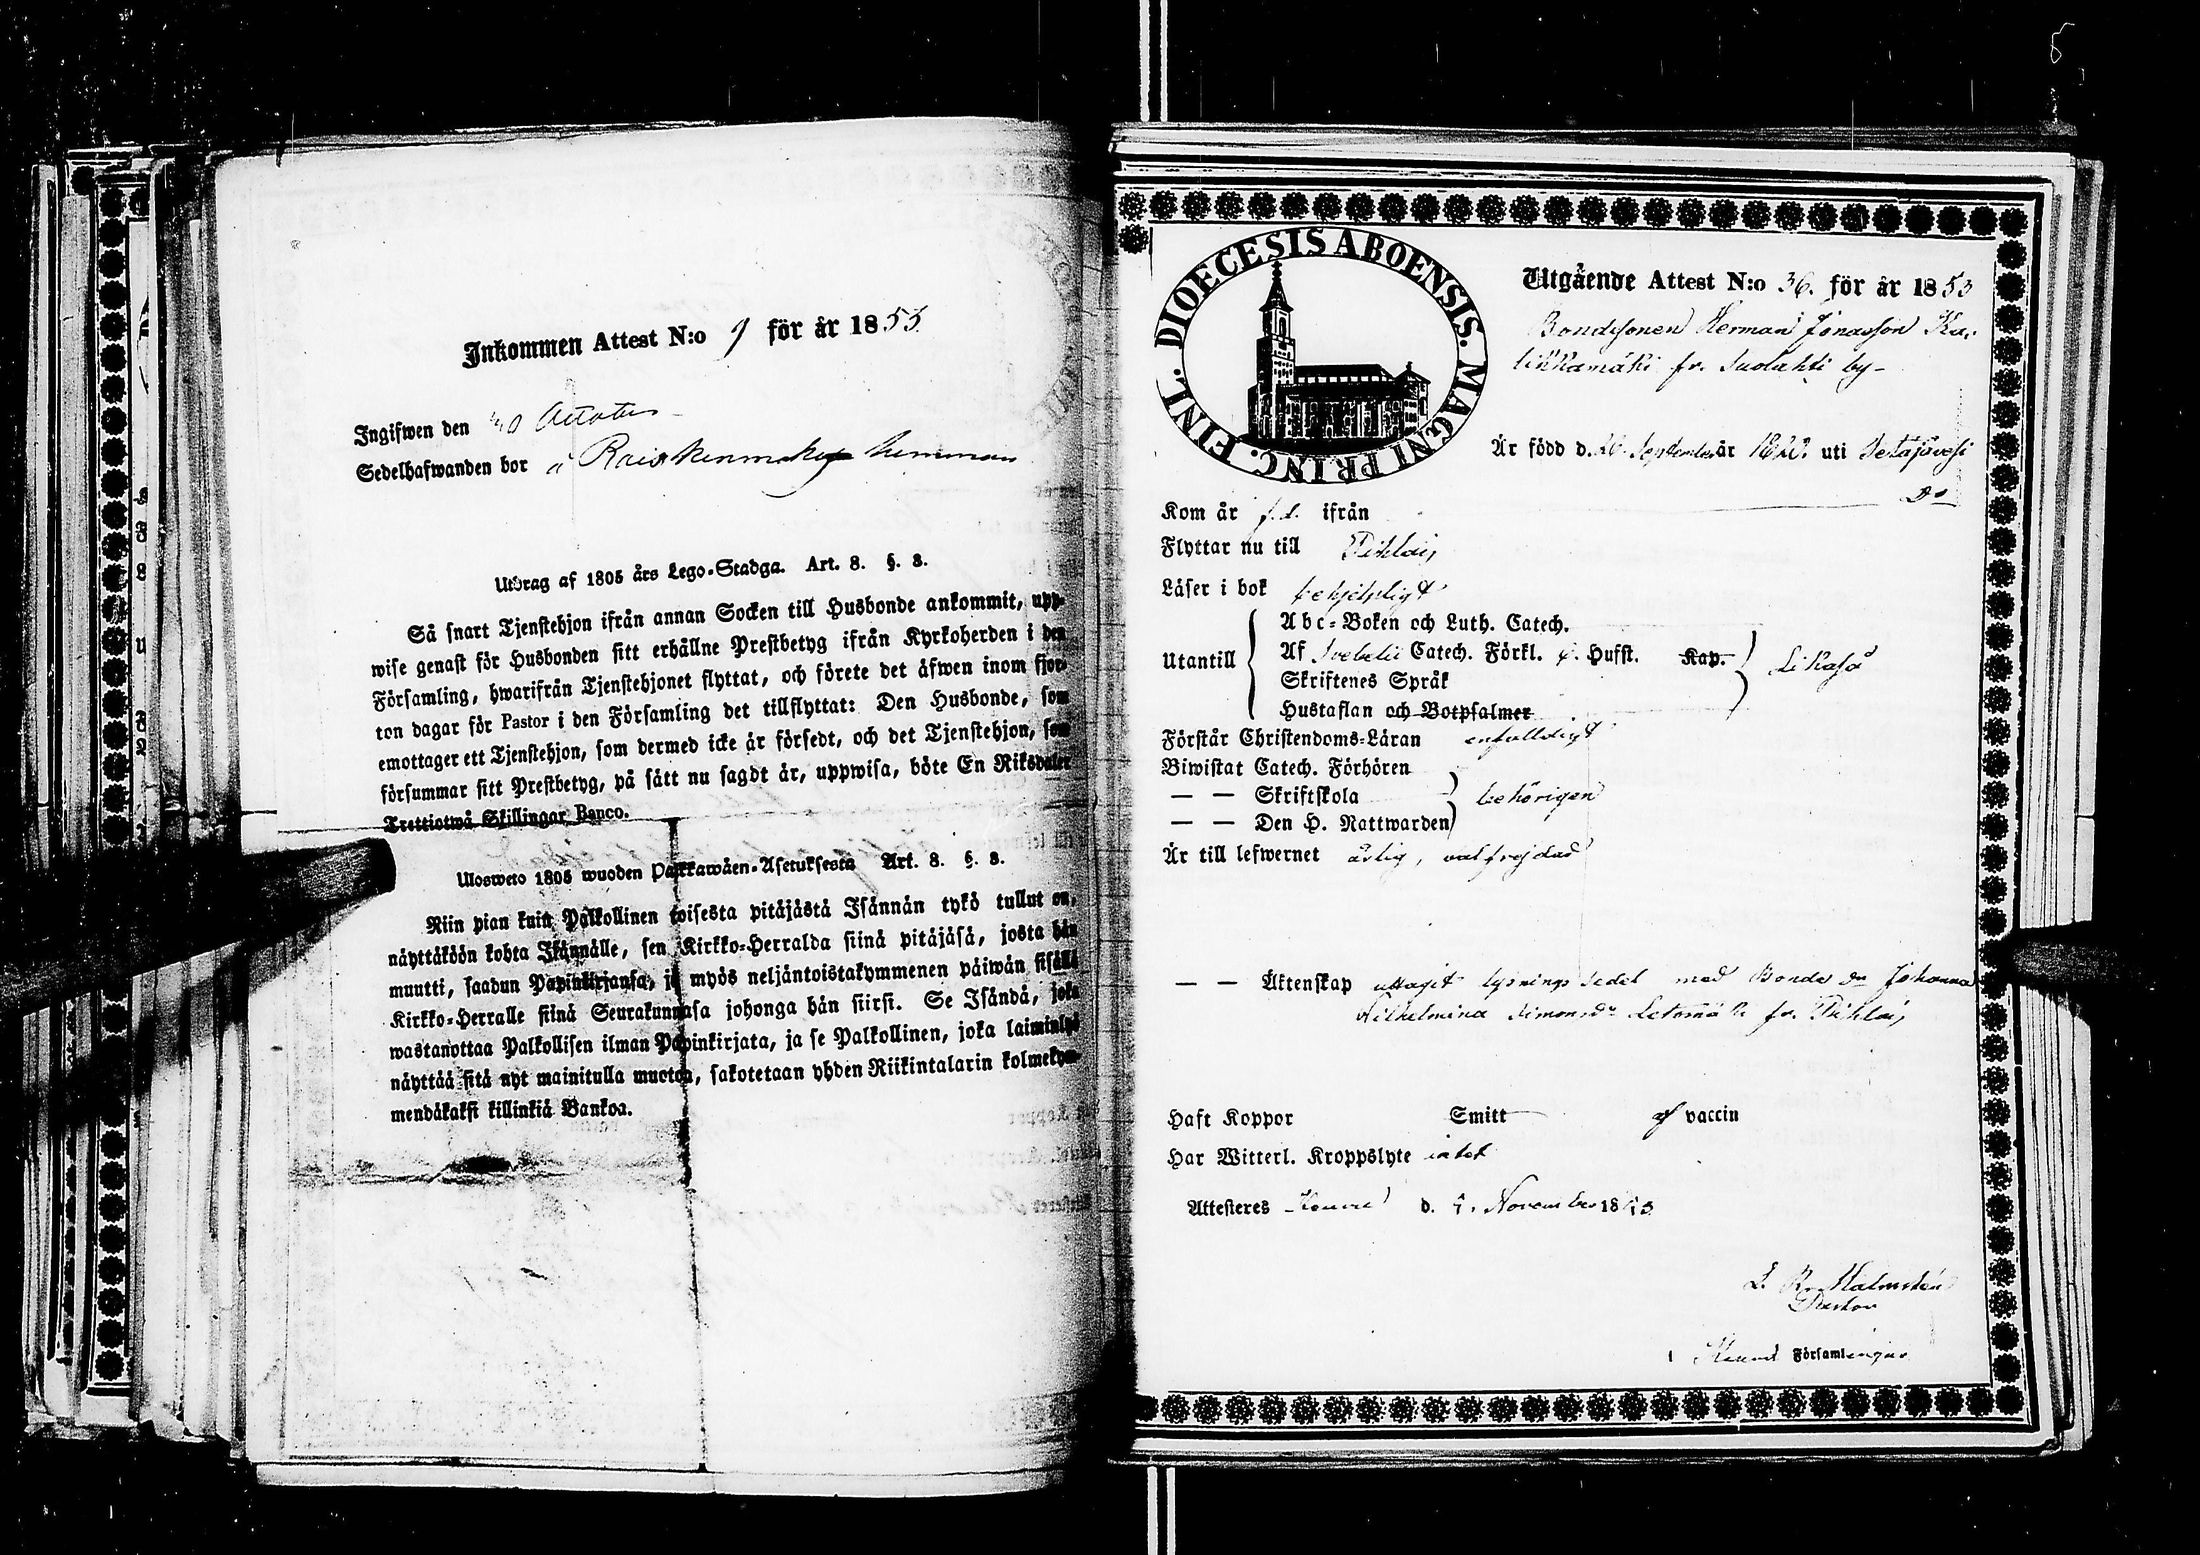 5
Inkommen Attest N:o 9 för år 1853.
Ingifwen den 30 October
Sedelhafwanden bor å hemman
Utdrag af 1805 års Lego-Stadga. Art. 8. §. 3.
Så snart Tjenstehjon ifrån annan Socken till Husbonde ankommit, upp-
wise genast för Husbonden sitt erhållne Prestbetyg ifrån Kyrkoherden i den
Församling, hwarifrån Tjenstehjonet flyttat, och förete det äfwen inom fjor-
ton dagar för Pastor i den Församling det tillflyttat: Den Husbonde, som
emottager ett Tjenstehjon, som dermed icke är försedt, och det Tjenstehjon, som
försummar sitt Prestbetyg, på sätt nu sagdt är, uppwisa, böte En Riksdaler
Trettiotwå Skillingar Banco.
Ulosweto 1805 wuoden Palkkawäen-Asetuksesta Art. 8. §. 3.
Niin pian kuin Palkollinen toisesta pitäjästä Isännän tykö tullut on,
näyttäköön kohta Isännälle, sen Kirkko-Herralda siinä pitäjäsä, josta hän
muutti, saadun Papinkirjansa, ja myös neljäntoistakymmenen päiwän sisällä
Kirkko-Herralle siinä Seurakunnasa johonga hän siirsi. Se Isändä, joka
wastanottaa Palkollisen ilman Papinkirjata, ja se Palkollinen, joka laiminlyö
näyttää sitä nyt mainitulla muotoa, sakotetaan yhden Riikintalarin kolmekym-
mendäkaksi killinkiä Bankoa.
DIOECESIS ABOENSIS. MAGNI PRINC. FINL.
Utgående Attest N:o 36. för år 1853
Bondesonen Herman Jonasson Ka-
likkamäki fr. Suolahti by
Är född d. 26. September år uti
Do
Kom år f.d. ifrån
Flyttar nu till Pihlais
Läser i bok behjelpligt
Abc-Boken och Luth. Catech.
Utantill Af Svebelii Catech. Förkl. Husst. Kap. Likaså
Skriftenes Språk
Hustaflan och Botpsalmer
Förstår Christendoms-Läran enfaldigt
Biwistat Catech. Förhören
— — Skriftskola behörigen
— — Den H. Nattwarden
Är till lefwernet ärlig, välfrejdad
— — Äktenskap uttagit lysnings sedel med Bonde dr Johanna
Wilhelmina Simonsdr fr. Pihlais
Haft Koppor Smitt af vaccin
Har Witterl. Kroppslyte intet
Attesteres d. November 1853
Malmstén
Pastor
i Församlingar